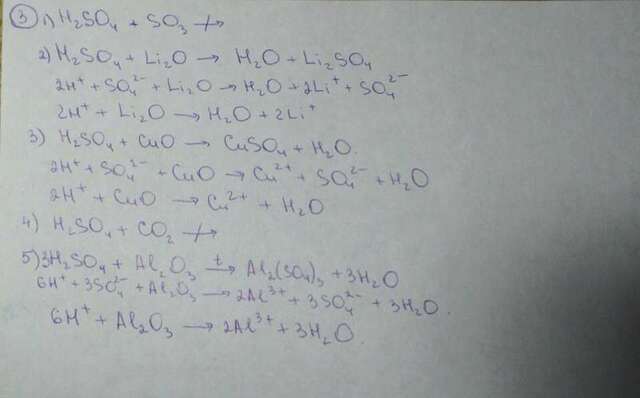 ③ 1) H₂SO₄ + SO₃ ↛
2) H₂SO₄ + Li₂O → H₂O + Li₂SO₄
2H⁺ + SO₄²⁻ + Li₂O → H₂O + 2Li⁺ + SO₄²⁻
2H⁺ + Li₂O → H₂O + 2Li⁺
3) H₂SO₄ + CuO → CuSO₄ + H₂O.
2H⁺ + SO₄²⁻ + CuO → Cu²⁺ + SO₄²⁻ + H₂O
2H⁺ + CuO → Cu²⁺ + H₂O
4) H₂SO₄ + CO₂ ↛
5) 3H₂SO₄ + Al₂O₃ →ᵗ Al₂(SO₄)₃ + 3H₂O
6H⁺ + 3SO₄²⁻ + Al₂O₃ → 2Al³⁺ + 3SO₄²⁻ + 3H₂O.
6H⁺ + Al₂O₃ → 2Al³⁺ + 3H₂O.